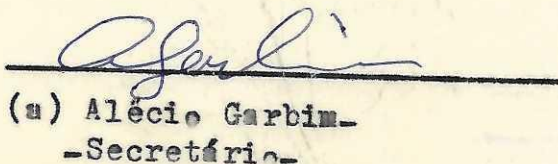 (a) Alécio Garbim_
-Secretário-